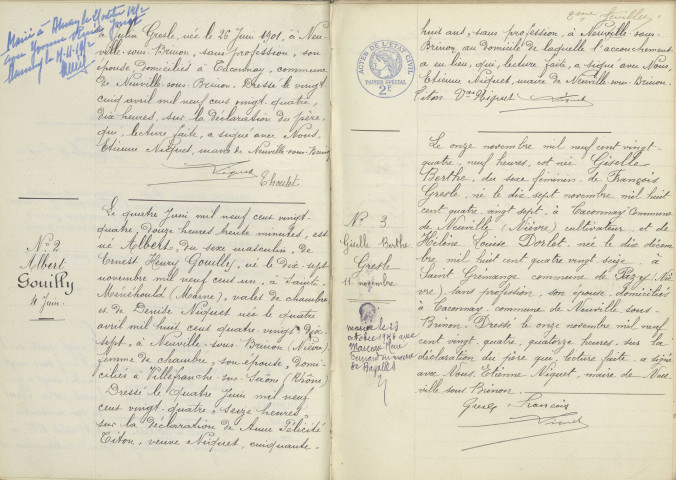 à Julia Gresle, née le 26 Juin 1901, à Neu-
ville-sous-Brinon, sans profession, son
épouse domiciliés à Caconnay, commune
de Neuville-sous-Brinon. Dressé le vingt
cinq avril mil neuf cent vingt-quatre,
dix heures, sur la déclaration du père,
qui, lecture faite, a signé avec Nous,
Etienne Niquet, maire de Neuville-sous-Brinon
Niquet
Thoulet
No 2
Albert
Gouilly
4 Juin.
Le quatre Juin mil neuf cent vingt-
quatre, douze heures trente minutes, est
né Albert, du sexe masculin, de
Ernest Henry Gouilly, né le dix-sept
novembre mil neuf cent un, à Sainte-
Ménéhould (Marne), valet de chambre
et de Denise Niquet née le quatre
avril mil huit cent quatre vingt dix
sept, à Neuville-sous-Brinon (Nièvre)
femme de chambre, son épouse, domi-
ciliés à Villefranche-sur-Saône (Rhône)
Dressé le Quatre Juin mil neuf
cent vingt-quatre, seize heures,
sur la déclaration de Anne Félicité
Titon, veuve Niquet, cinquante-
huit ans, sans profession, à Neuville-sous-
Brinon au domicile de laquelle l'accouchement
a eu lieu, qui, lecture faite, a signé avec Nous,
Etienne Niquet, maire de Neuville-sous-Brinon.
Titon Ve Niquet
Niquet
ACTES DE L'ETAT CIVIL
PAPIER SPÉCIAL
2F
No 3
Giselle Berthe
Gresle
11 novembre
Le onze novembre mil neuf cent vingt-
quatre, neuf heures, est née Giselle
Berthe, du sexe féminin, de François
Gresle, né le dix sept novembre mil huit
cent quatre vingt sept, à Caconnay commune
de Neuville (Nièvre) cultivateur, et de
Hélène Louise Dorlet, née le dix décem
bre mil huit cent quatre vingt seize, à
Saint Gremange commune de Pazy (Niè
vre) sans profession, son épouse, domiciliés
à Caconnay, commune de Neuville sous-
Brinon. Dressé le onze novembre mil neuf
cent vingt quatre, quatorze heures, sur la
déclaration du père qui, lecture faite, a signé
avec Nous, Etienne Niquet, maire de Neu
ville sous Brinon.
Gresle François
Niquet